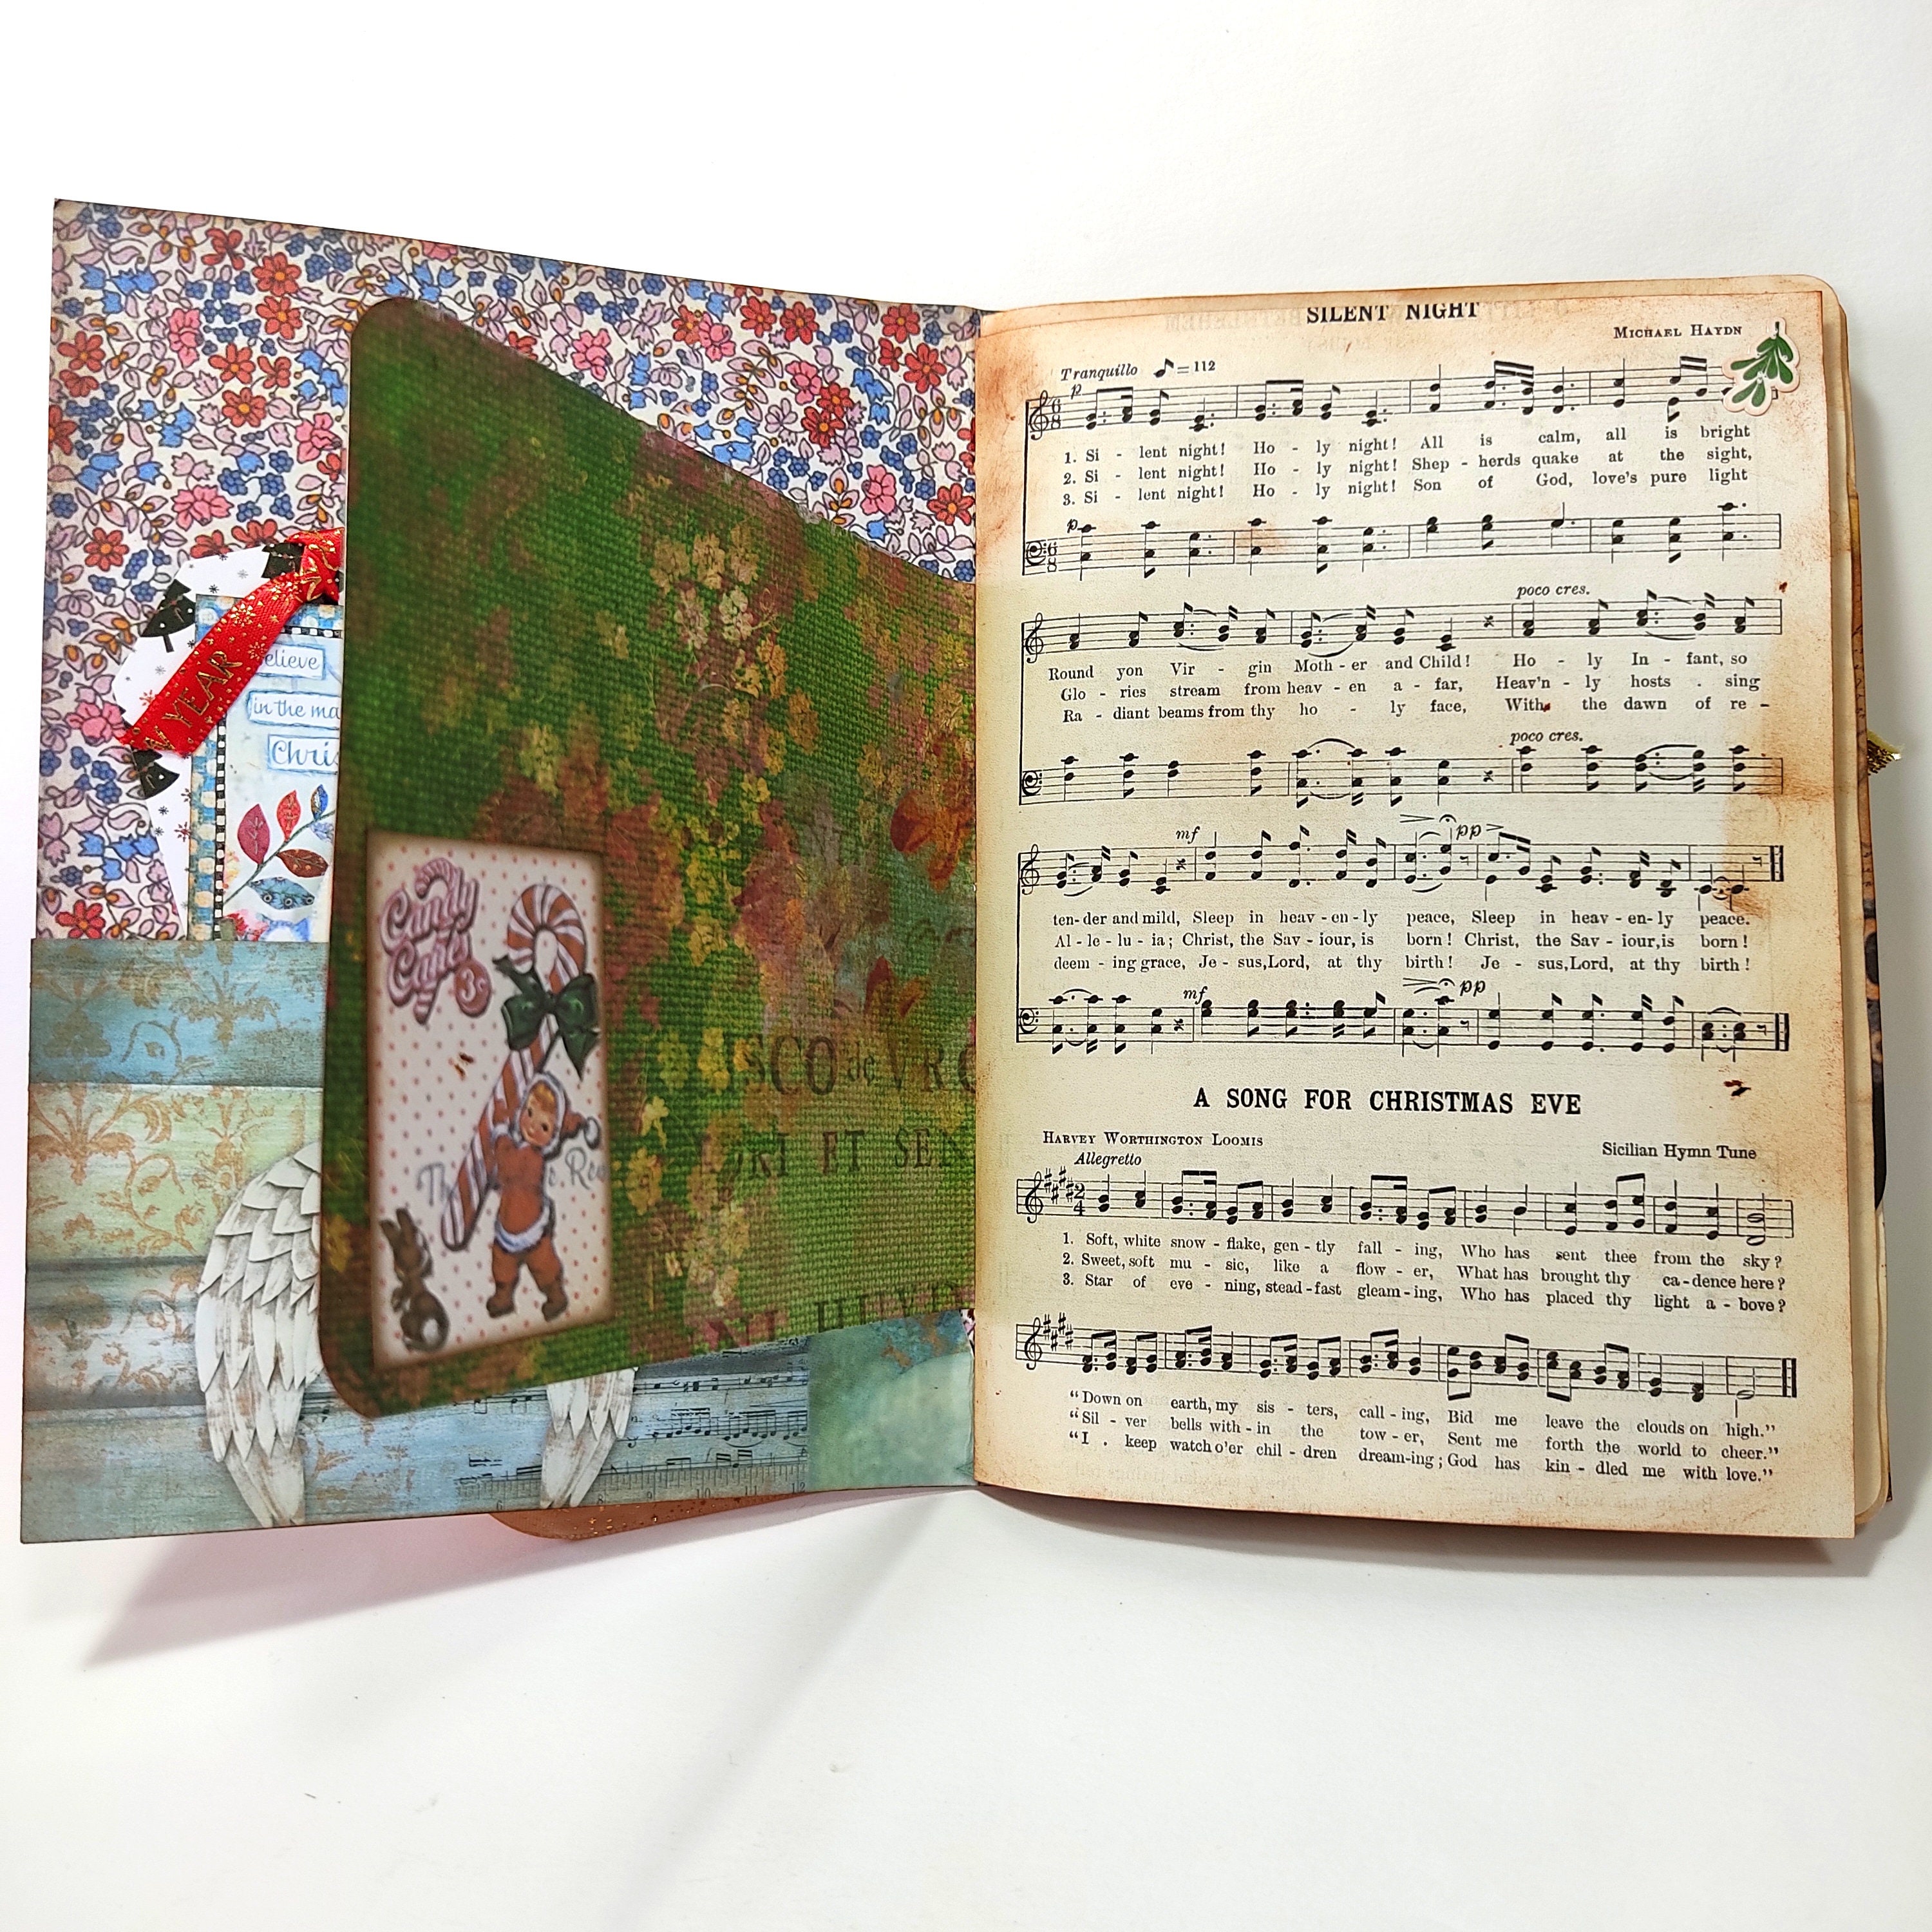 YEAR
elieve
in the ma
Chris
Candy
Cane
3¢
SCO de
ET SEN
SILENT NIGHT
MICHAEL HAYDN
Tranquillo = 112
p
1. Si - lent night! Ho - ly night! All is calm, all is bright
2. Si - lent night! Ho - ly night! Shep - herds quake at the sight,
3. Si - lent night! Ho - ly night! Son of God, love's pure light
p
poco cres.
Round yon Vir - gin Moth - er and Child! Ho - ly In - fant, so
Glo - ries stream from heav - en a - far, Heav'n - ly hosts . sing
Ra - diant beams from thy ho - ly face, With the dawn of re -
poco cres.
mf pp
ten- der and mild, Sleep in heav - en - ly peace, Sleep in heav - en- ly peace.
Al - le - lu - ia; Christ, the Sav - iour, is born! Christ, the Sav - iour,is born!
deem - ing grace, Je - sus,Lord, at thy birth! Je - sus,Lord, at thy birth!
mf pp
A SONG FOR CHRISTMAS EVE
HARVEY WORTHINGTON LOOMIS
Sicilian Hymn Tune
Allegretto
1. Soft, white snow - flake, gen - tly fall - ing, Who has sent thee from the sky?
2. Sweet, soft mu - sic, like a flow - er, What has brought thy ca - dence here?
3. Star of eve - ning, stead - fast gleam - ing, Who has placed thy light a - bove?
"Down on earth, my sis - ters, call - ing, Bid me leave the clouds on high."
"Sil - ver bells with - in the tow - er, Sent me forth the world to cheer."
"I . keep watch o'er chil - dren dream - ing; God has kin - dled me with love."